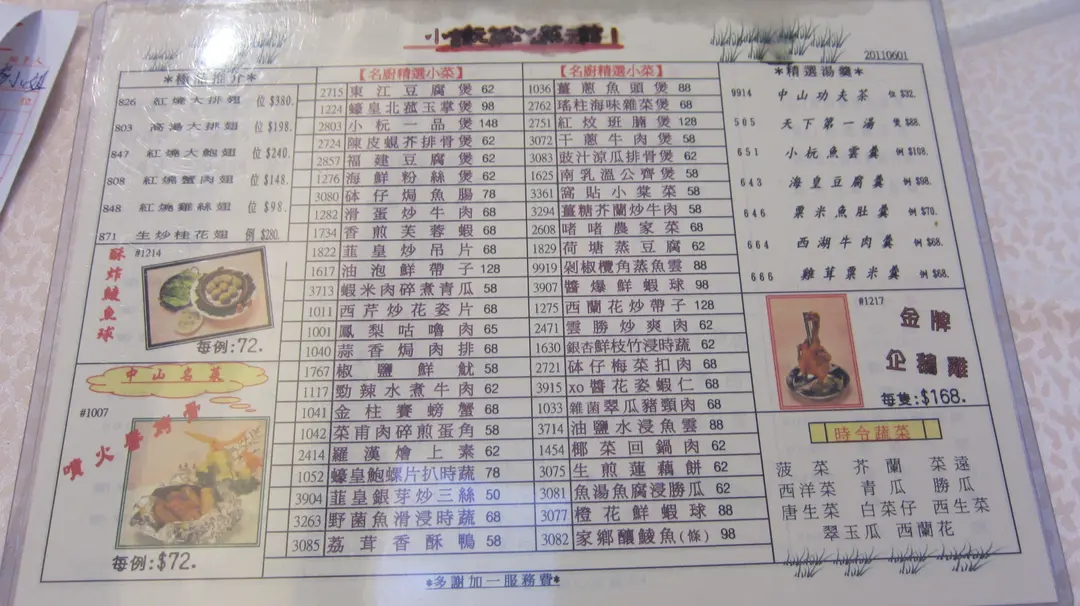 小
20110601
826 紅燒大排翅 位$380.
803 高湯大排翅 位$198.
847 紅燒大鮑翅 位$240.
808 紅燒蟹肉翅 位$148.
848 紅燒雞絲翅 位$98.
871 生炒桂花翅 例$280.
酥炸鯪魚球
#1214
每例:72.
中山名菜
#1007
噴火醬
每例:$72.
【名廚精選小菜】
2715 東江豆腐煲 62
1224 蠔皇北菰玉掌煲 98
2803 小杬一品煲 148
2724 陳皮蜆芥排骨煲 62
2857 福建豆腐煲 62
1276 海鮮粉絲煲 62
3080 砵仔焗魚腸 78
1282 滑蛋炒牛肉 68
1734 香煎芙蓉蝦 68
1822 韮皇炒吊片 68
1617 油泡鮮帶子 128
3713 蝦米肉碎煮青瓜 58
1011 西芹炒花姿片 68
1001 鳳梨咕嚕肉 65
1040 蒜香焗肉排 68
1767 椒鹽鮮魷 58
1117 勁辣水煮牛肉 62
1041 金柱賽螃蟹 68
1042 菜甫肉碎煎蛋角 58
2414 羅漢燴上素 62
1052 蠔皇鮑螺片扒時蔬 78
3904 韮皇銀芽炒三絲 50
3263 野菌魚滑浸時蔬 68
3085 荔茸香酥鴨 58
【名廚精選小菜】
1036 薑蔥魚頭煲 88
2762 瑤柱海味雜菜煲 68
2751 紅炆班腩煲 128
3072 干蔥牛肉煲 58
3083 豉汁涼瓜排骨煲 58
1625 南乳溫公齋煲 58
3361 窩貼小棠菜 58
3294 薑糖芥蘭炒牛肉 58
2608 啫啫農家菜 68
1829 荷塘蒸豆腐 62
9919 剁椒欖角蒸魚雲 88
3907 醬爆鮮蝦球 98
1275 西蘭花炒帶子 128
2471 雲勝炒爽肉 62
1630 銀杏鮮枝竹浸時蔬 62
2721 砵仔梅菜扣肉 68
3915 xo醬花姿蝦仁 68
1033 雜菌翠瓜豬頸肉 68
3714 油鹽水浸魚雲 88
1454 椰菜回鍋肉 62
3075 生煎蓮藕餅 62
3081 魚湯魚腐浸勝瓜 62
3077 橙花鮮蝦球 88
3082 家鄉釀鯪魚(條) 98
*精選湯羹*
9914 中山功夫茶 位$32.
505 天下第一湯 煲$88.
651 小杬魚雲羹 例$108.
643 海皇豆腐羹 例$98.
646 粟米魚肚羹 例$70.
664 西湖牛肉羹 例$68.
666 雞茸粟米羹 例$68.
#1217
金牌
企鵝雞
每隻:$168.
時令蔬菜
菠菜 芥蘭 菜遠
西洋菜 青瓜 勝瓜
唐生菜 白菜仔 西生菜
翠玉瓜 西蘭花
*多謝加一服務費*